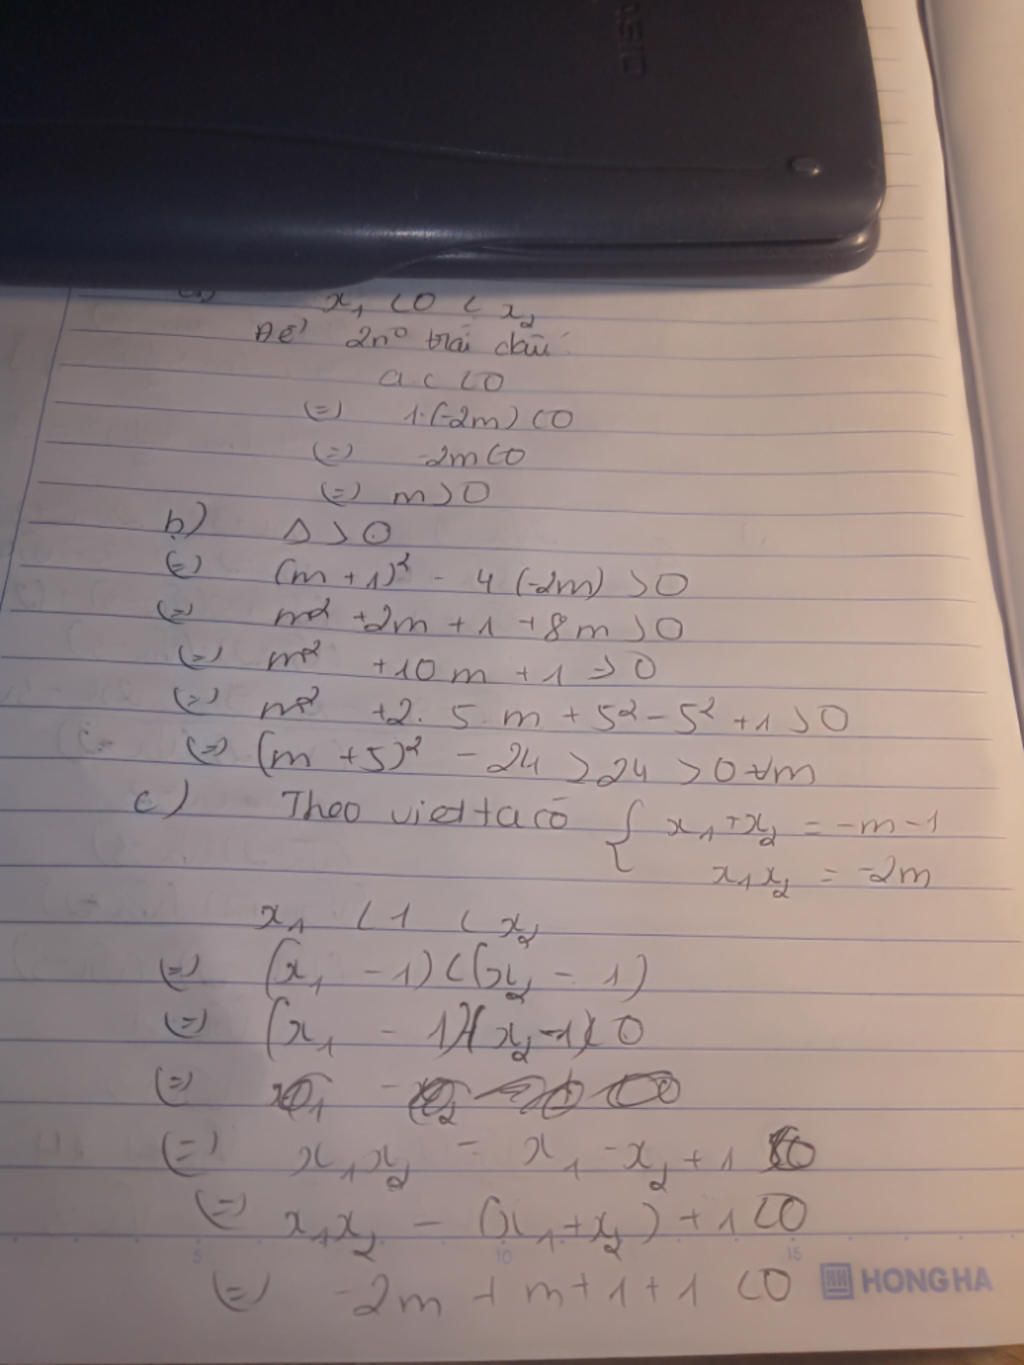 x₁ < 0 < x₂
Để 2n⁰ trái dấu:
ac < 0
(=) 1.(-2m) < 0
(=) -2m < 0
(=) m > 0
b) Δ > 0
(=) (m + 1)² - 4 (-2m) > 0
(=) m² + 2m + 1 + 8m > 0
(=) m² + 10m + 1 > 0
(=) m² + 2. 5. m + 5² - 5² + 1 > 0
(=) (m + 5)² - 24 > 24 > 0 ∀m
c) Theo viet ta có { x₁ + x₂ = -m - 1
x₁x₂ = -2m
x₁ < 1 < x₂
(=) (x₁ - 1) < (x₂ - 1)
(=) (x₁ - 1)(x₂ - 1) < 0
(=)
(=) x₁x₂ - x₁ - x₂ + 1 < 0
(=) x₁x₂ - (x₁ + x₂) + 1 < 0
5 10 15
(=) -2m + m + 1 + 1 < 0 HONG HA